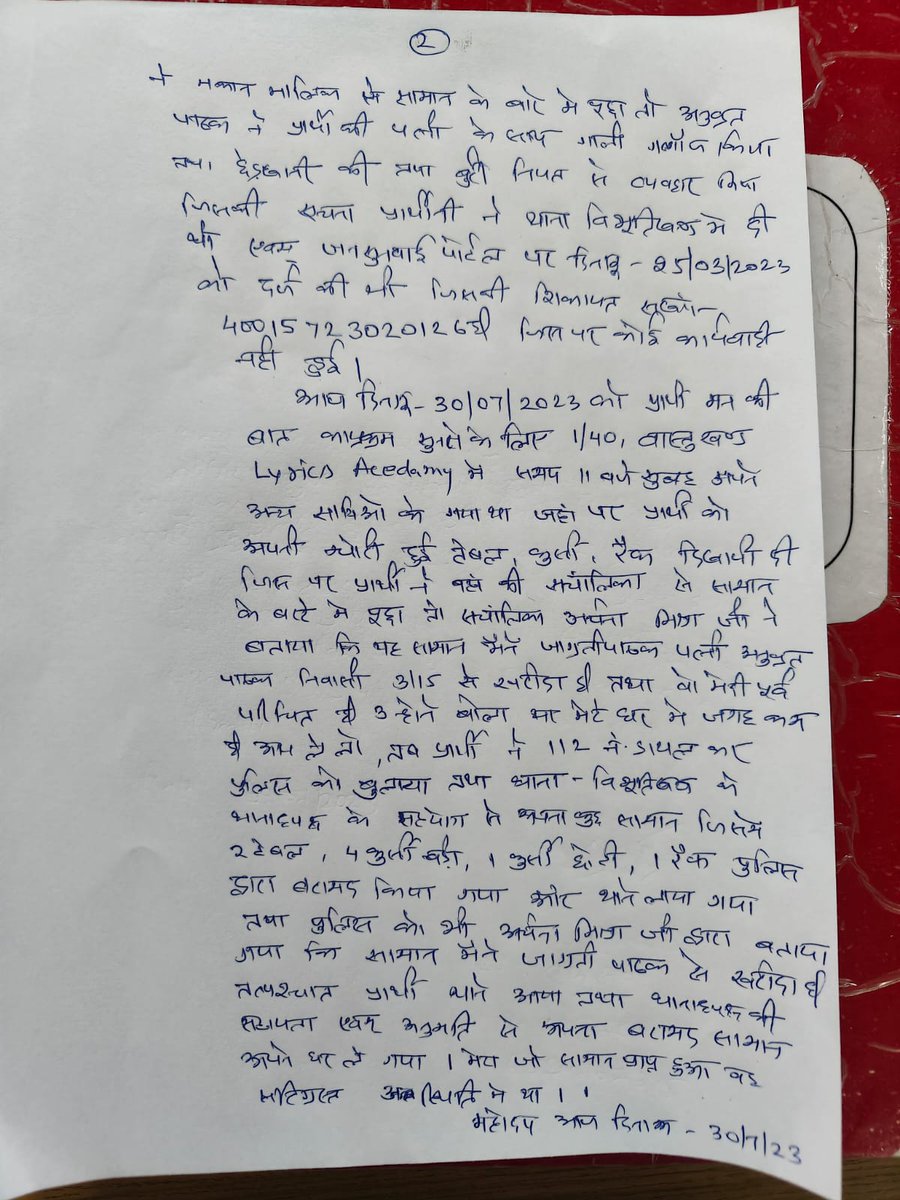 2
ने मकान मालिक से सामान के बारे मे पूछा तो अनुव्रत
पाठक ने प्रार्थी की पत्नी के साथ गाली गलौंज किया
तथा छेड़खानी की तथा बुरी नियत से व्यवहार किया
जिसकी सूचना प्रार्थीनी ने थाना विभूतिखण्ड मे दी
थी एवम् जनसुनवाई पोर्टल पर दिनांक - 25/03/2023
को दर्ज की थी जिसकी शिकायत संख्या-
40015723020126 है जिस पर कोई कार्यवाही
नही हुई।
आज दिनांक - 30/07/2023 को प्रार्थी मन की
बात कार्यक्रम सुनने के लिए 1/40, वास्तुखण्ड
Lyrics Acedamy मे समय 11 बजे सुबह अपने
अन्य साथिओ के गया था जहां पर प्रार्थी को
अपनी चोरी हुई टेबल, कुर्सी, रैक दिखायी दी
जिस पर प्रार्थी ने वहां की संचालिका से सामान
के बारे मे पूछा तो संचालिका अर्चना मिश्रा जी ने
बताया कि यह सामान मैने जागृती पाठक पत्नी अनुव्रत
पाठक निवासी 3/15 से खरीदा है तथा वो मेरी पूर्व
परिचित है उन्होने बोला था मेरे घर मे जगह कम
है आप ले लो, तब प्रार्थी ने 112 नं. डायल कर
पुलिस को बुलाया तथा थाना - विभूतिखण्ड के
थानाध्यक्ष के सहयोग से अपना कुछ सामान जिसमे
2 टेबल, 4 कुर्सी बड़ी, 1 कुर्सी छोटी, 1 रैक पुलिस
द्वारा बरामद किया गया और थाने लाया गया
तथा पुलिस को भी अर्चना मिश्रा जी द्वारा बताया
गया कि सामान मैने जागृती पाठक से खरीदा है
तत्पश्चात प्रार्थी थाने आया तथा थानाध्यक्ष की
सहायता एवम् अनुमति से अपना बरामद सामान
अपने घर ले गया। मेरा जो सामान प्राप्त हुआ वह
स्थिति मे था।
महोदय आज दिनांक - 30/7/23